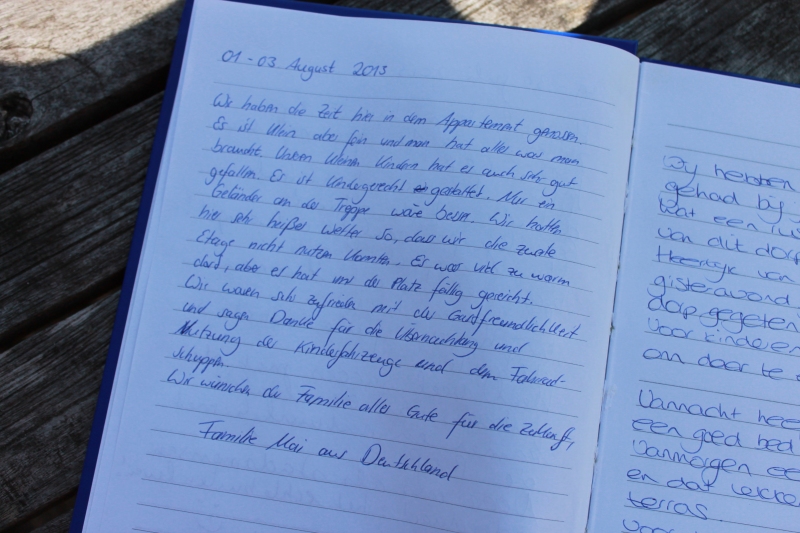 01 - 03 August 2013
Wir haben die Zeit hier in dem Appartement genossen.
Es ist klein aber fein und man hat alles was man
braucht. Unsren kleinen Kindern hat es auch sehr gut
gefallen. Es ist kindgerecht gestaltet. Nur ein
Geländer an der Treppe wäre besser. Wir hatten
hier sehr heißes Wetter so, dass wir die zweite
Etage nicht nutzen konnten. Es war viel zu warm
dort, aber es hat uns der Platz völlig gereicht.
Wir waren sehr zufrieden mit der Gastfreundlichkeit
und sagen Danke für die Übernachtung und
Nutzung der Kinderfahrzeuge und dem Fahrrad-
schuppen.
Wir wünschen der Familie alles Gute für die Zukunft,
Familie Mai aus Deutschland
Wij hebben
gehad bij
Wat een
van dit dorp
Heerlijk van
gisteravond
dorp gegeten
voor kinderen
om daar te
Vannacht
een goed bed
Vanmorgen
en dat lekker
terras.
voor